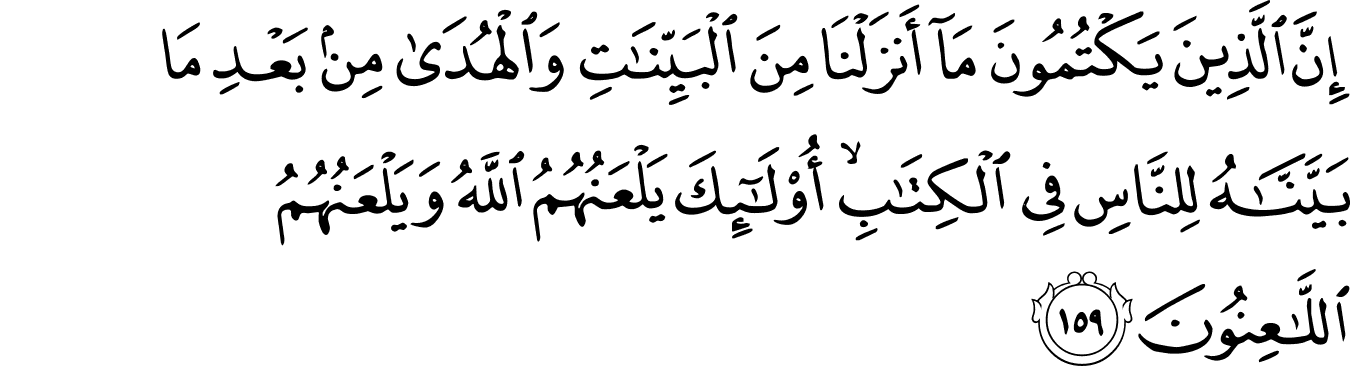 إِنَّ ٱلَّذِينَ يَكْتُمُونَ مَآ أَنزَلْنَا مِنَ ٱلْبَيِّنَـٰتِ وَٱلْهُدَىٰ مِنۢ بَعْدِ مَا
بَيَّنَّـٰهُ لِلنَّاسِ فِى ٱلْكِتَـٰبِ ۙ أُو۟لَـٰٓئِكَ يَلْعَنُهُمُ ٱللَّهُ وَيَلْعَنُهُمُ
ٱللَّـٰعِنُونَ ١٥٩